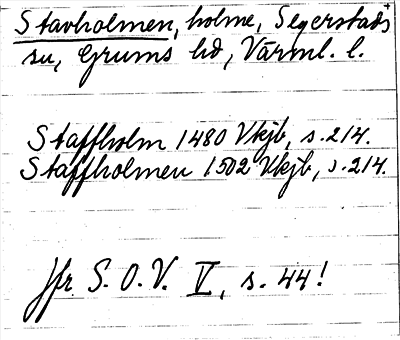 Stavholmen, holme, Segerstads
sn, Grums hd, Värml. l.
Staffholm 1480 Vkjb, s. 214.
Staffholmen 1502 Vkjb, s. 214.
Jfr S. O. V. V, s. 44!